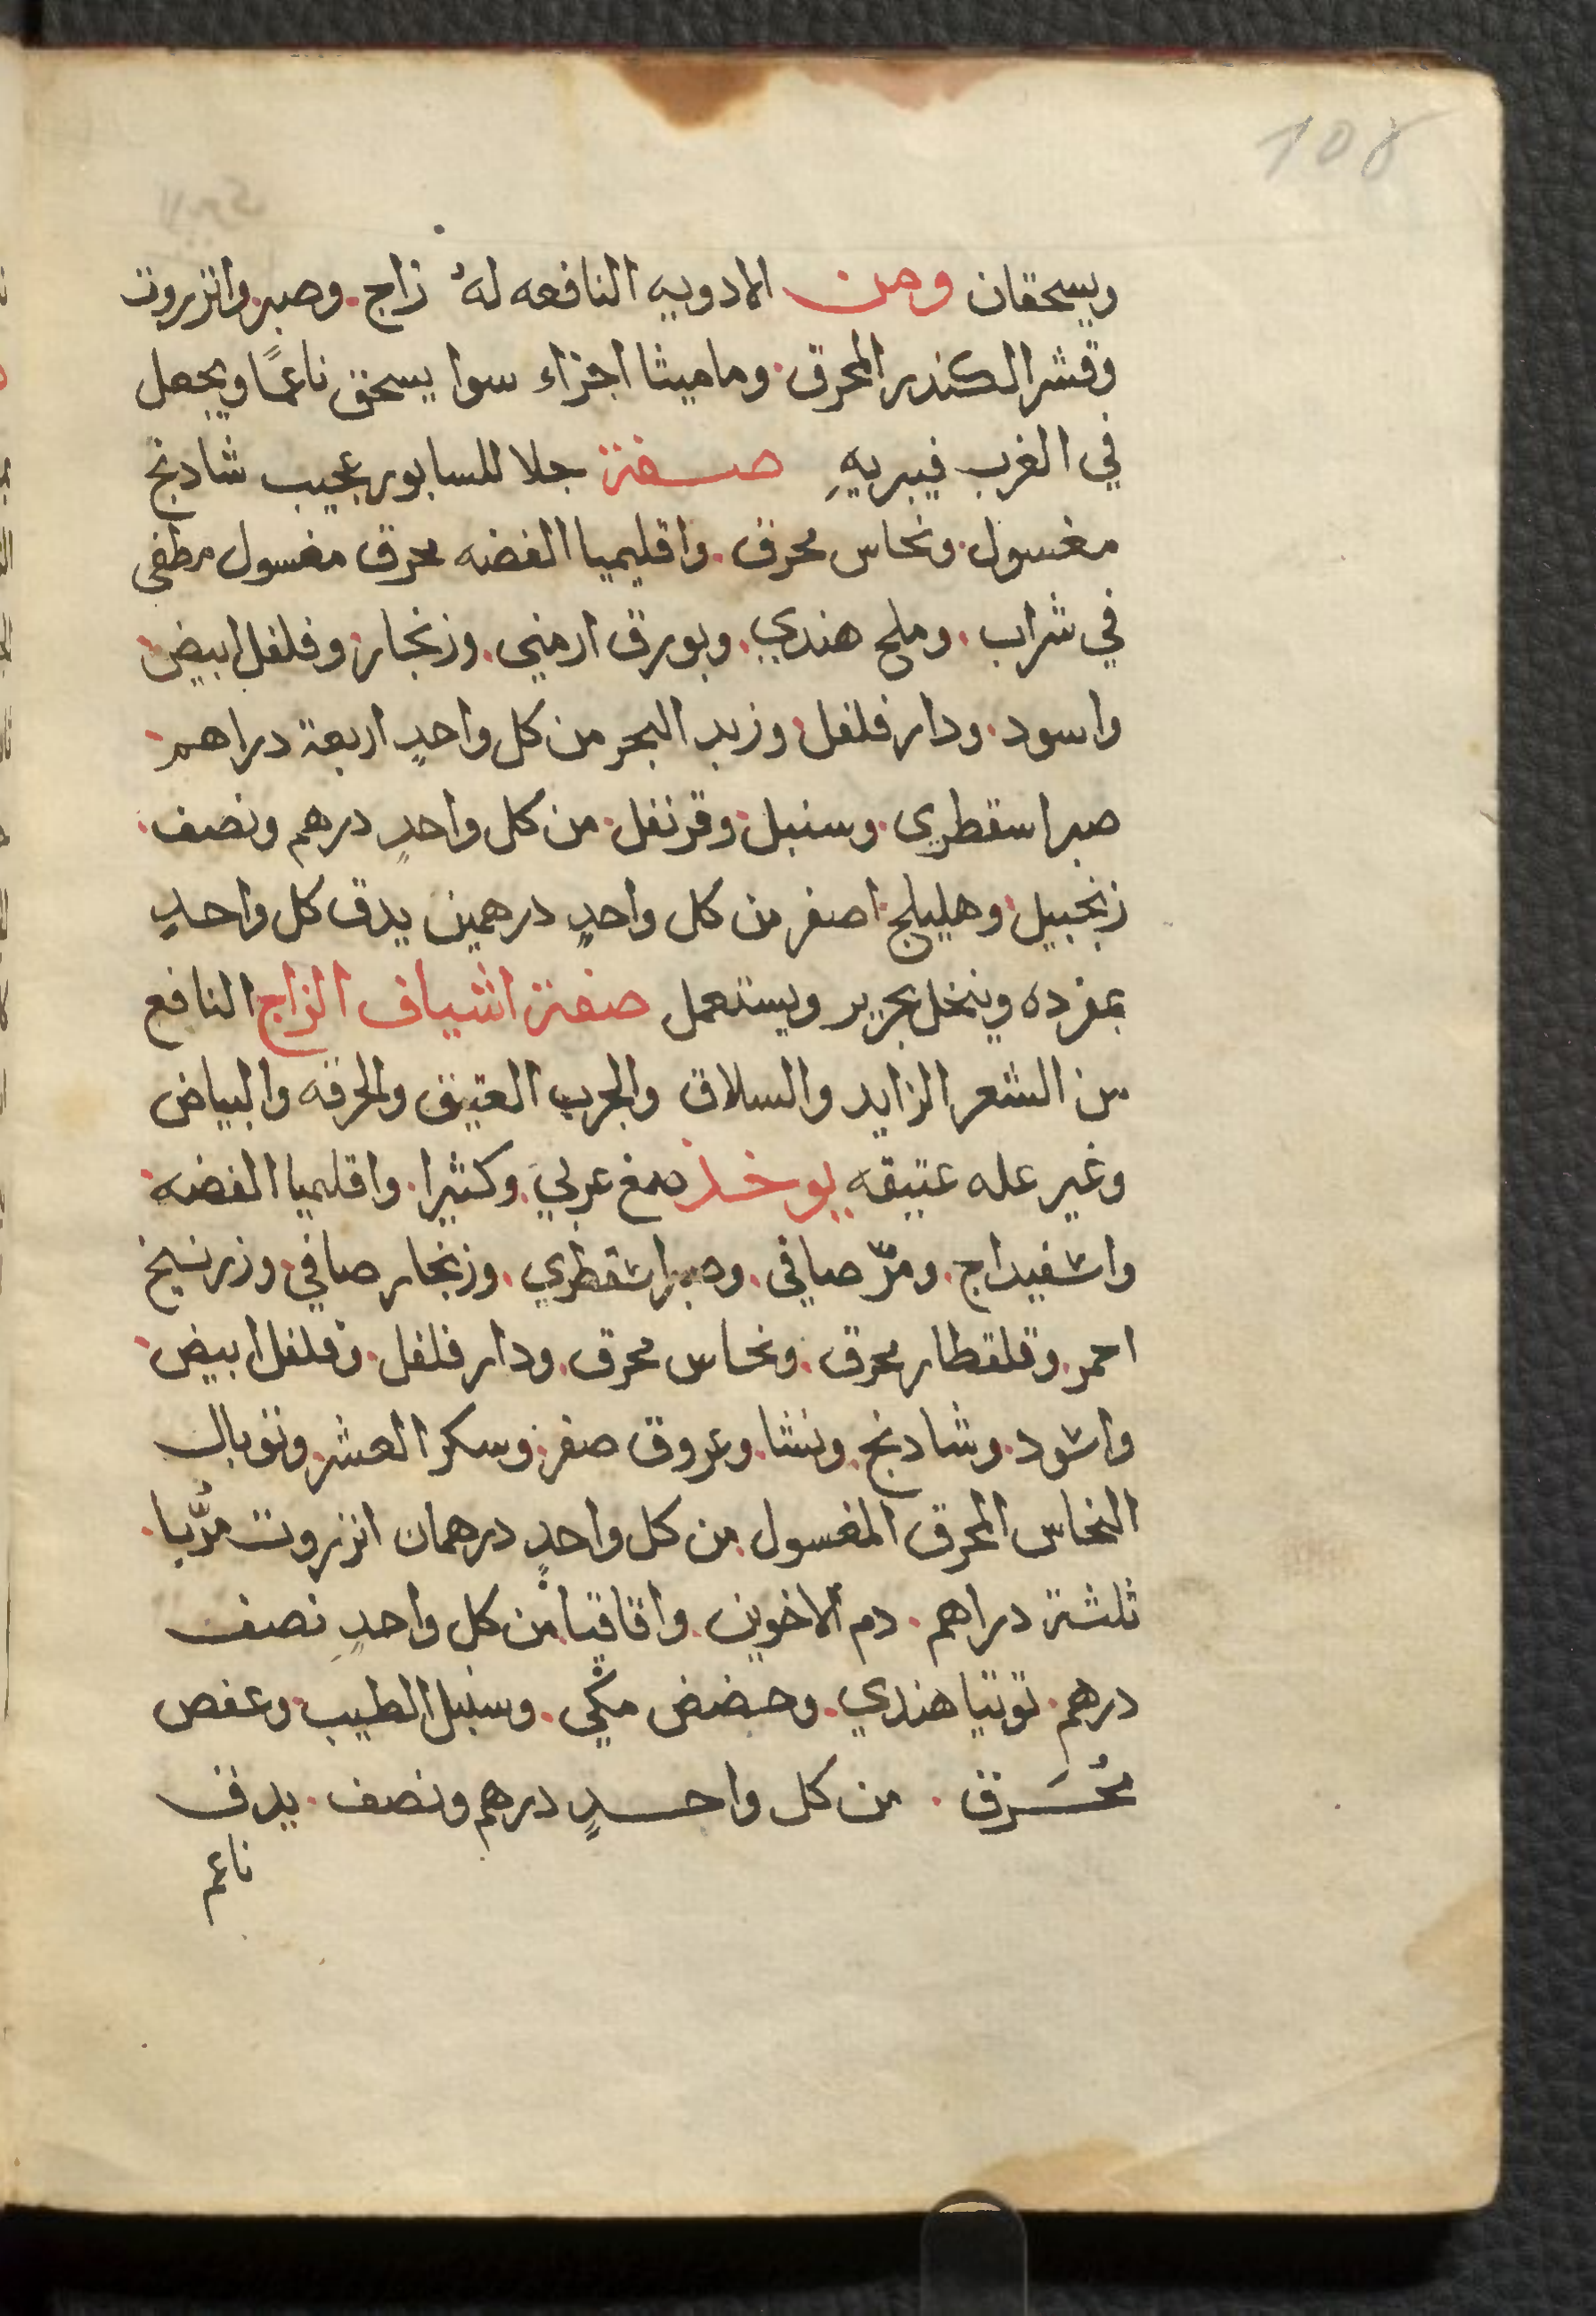 108
ويسحقان ومن الادويه النافعه لهُ زاج. وصبر. وانزروت
وقشر الكندر المحرق. وماميثا اجزاء سوا يسحق ناعمًا ويجعل
في الغرب فيبريهِ صفة جلا للسابور عجيب شادنج
مغسول. ونحاس محرق. واقليميا الفضه محرق مغسول مطفى
في شراب. وملح هندي. وبورق ارمني. وزنجار. وفلفل ابيض.
واسود. ودار فلفل. وزبد البحر من كل واحدٍ اربعة دراهم.
صبر اسقطري. وسنبل. وقرنفل. من كل واحدٍ درهم ونصف.
زنجبيل. وهليلج. اصفر من كل واحدٍ درهمين يدق كل واحدٍ
بمفرده وينخل بحرير ويستعمل صفة اشياف الزاج النافع
من الشعر الزايد والسلاق والجرب العتيق والحرقه والبياض
وغير عله عتيقه يوخذ صمغ عربي. وكثيرا. واقليميا الفضه.
واسفيداج. ومرّ صافي. وصبر اسقطري. وزنجار صافي. وزرنيخ
احمر. وقلقطار محرق. ونحاس محرق. ودار فلفل. وفلفل ابيض.
واسود. وشادنج. ونشا. وعروق صفر. وسكر العشر. وتوبال
النحاس المحرق المغسول. من كل واحدٍ درهمان انزروت مُرَّبا.
ثلثة دراهم. دم الاخوين. واقاقيا. من كل واحدٍ نصف
درهم. توتيا هندي. وحضض مكي. وسنبل الطيب. وعفص
مُحَرق. من كل واحدٍ درهم ونصف. يدق
ناعم